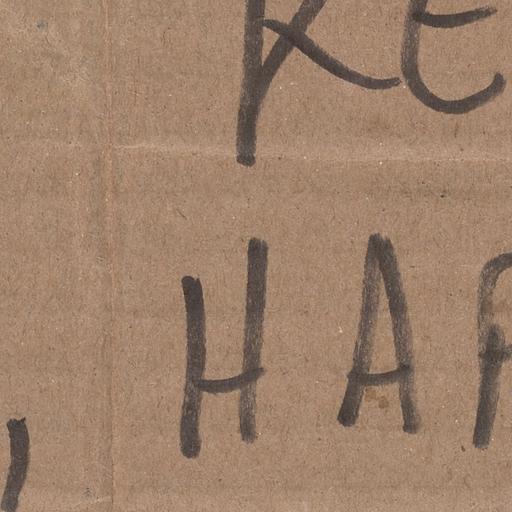 KE
, HA